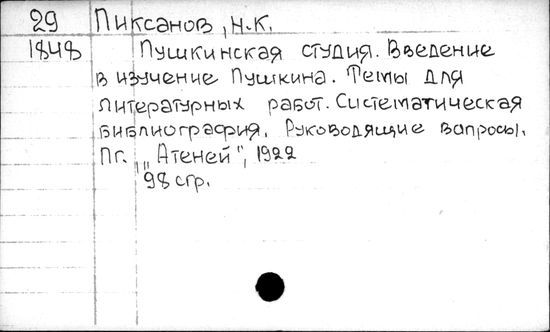 29 Пиксанов, Н.К.
1848 Пушкинская студия. Введение
в изучение Пушкина. Темы для
литературных работ. Систематическая
библиография. Руководящие вопросы.
Пг., „Атеней", 1922
98 стр.